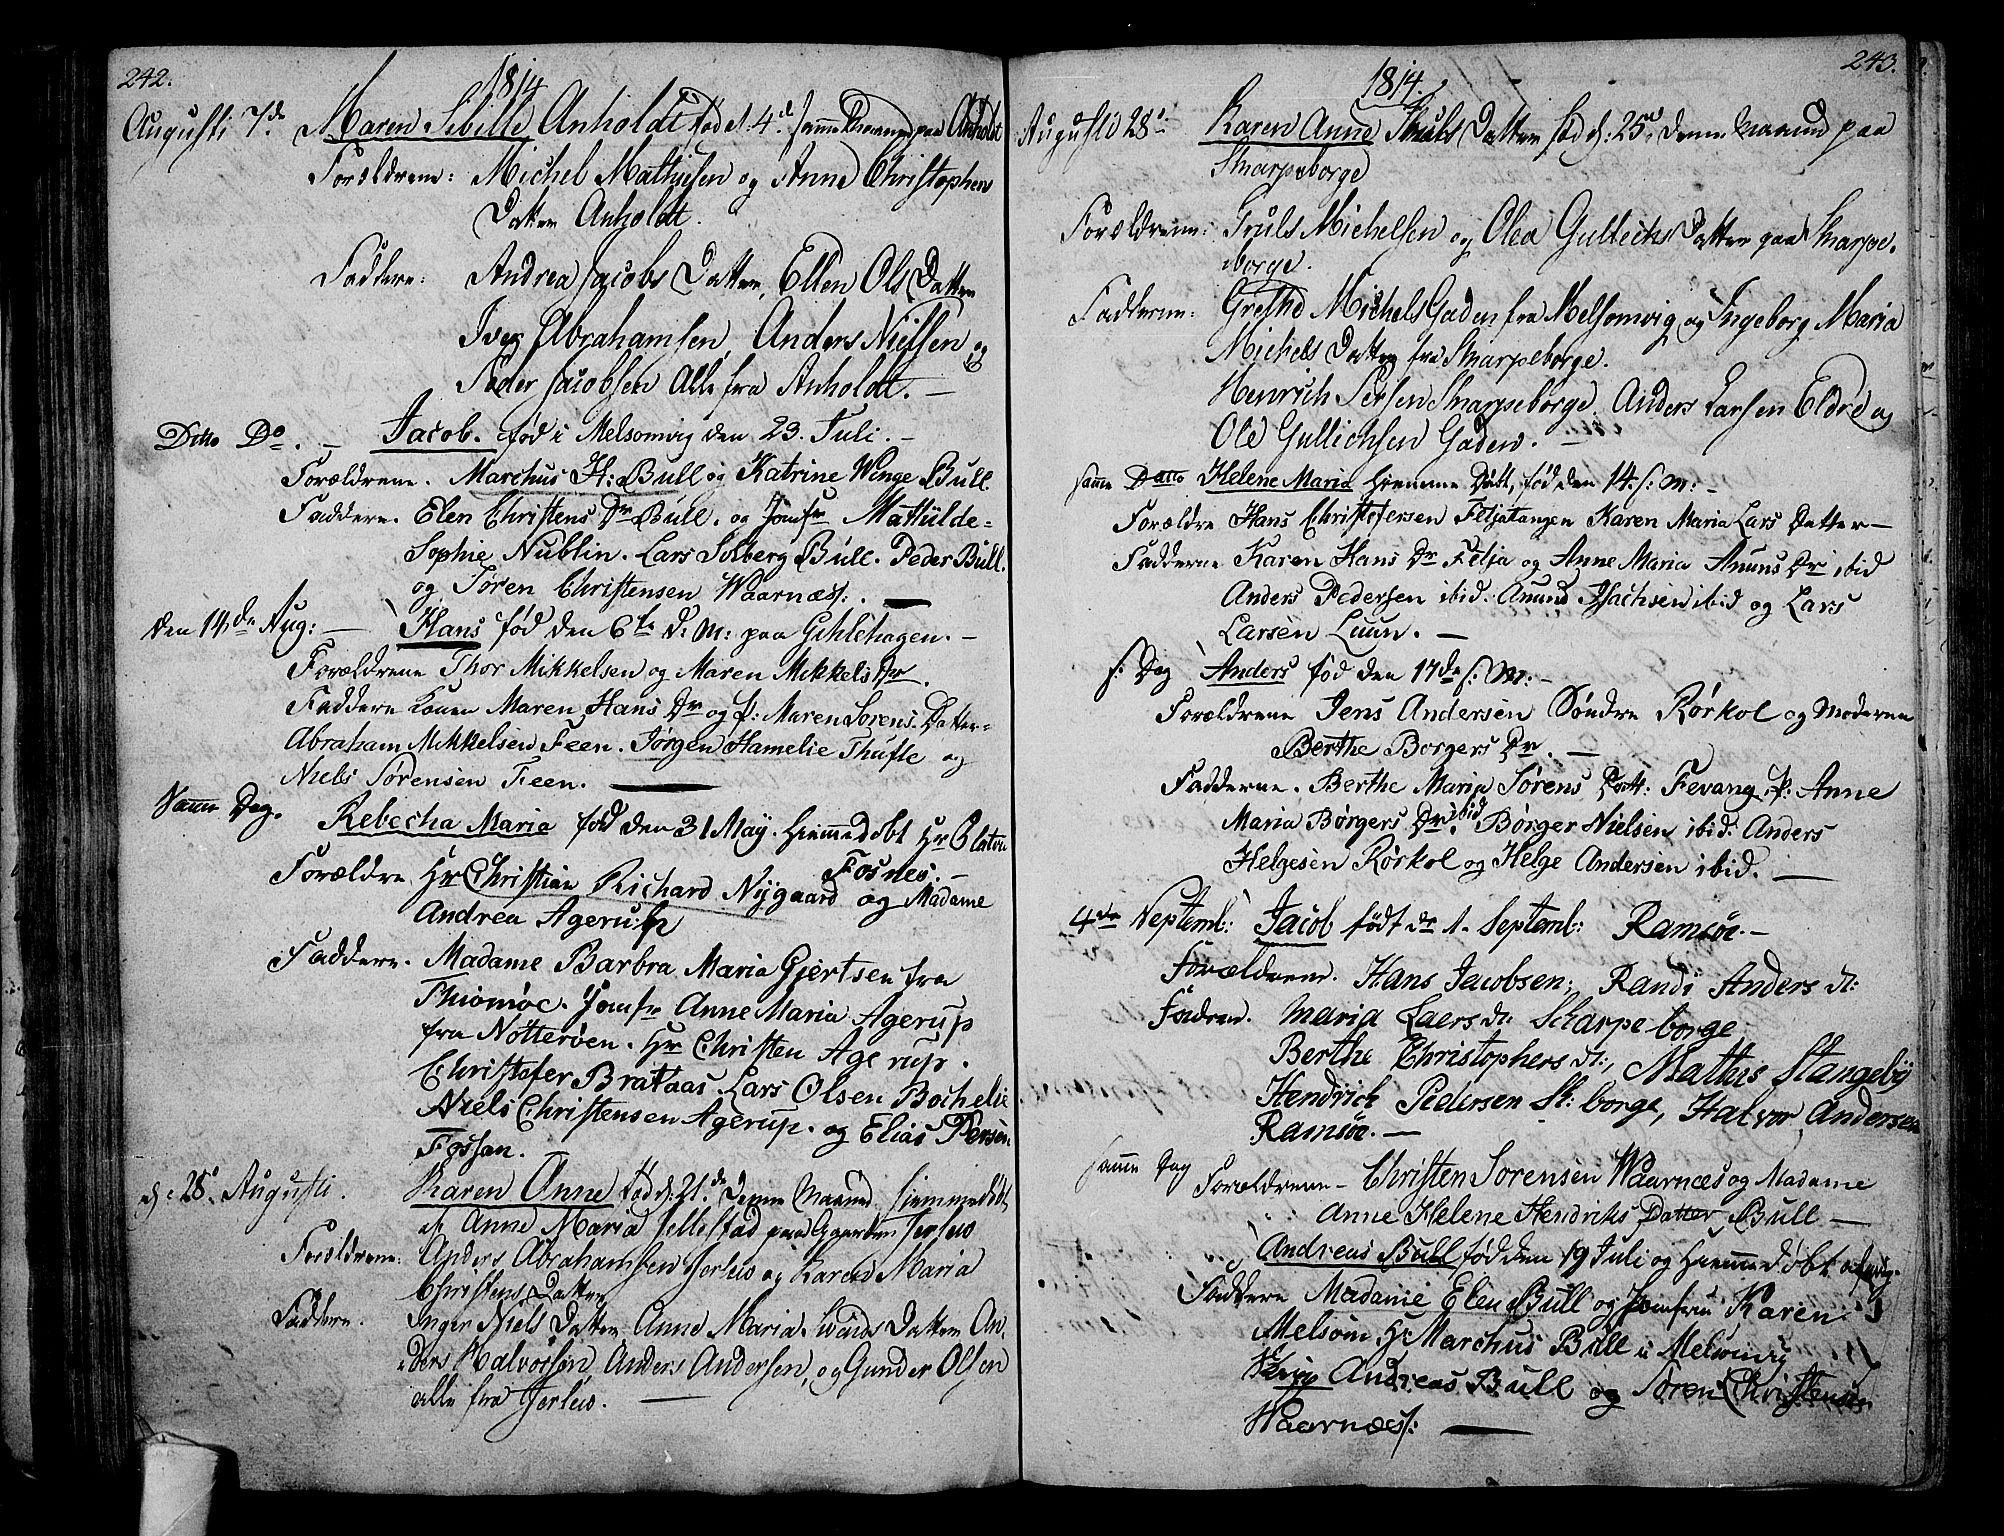 242.
1814
Augusti 7de Maren Sibille Anholdt fød d. 4de samme Maaned paa Anholdt
Forældrene: Michel Mathisen og Anne Christophers
Datter Anholdt.
Faddere: Andrea Jacobs Datter, Ellen Ols Datter
Iver Abrahamsen, Anders Nielsen og
Peder Jacobsen alle fra Anholdt. —
Ditto Do. — Jacob. fød i Melsomvig den 23. Juli. —
Forældrene. Marchus H: Bull og Katrine Winge Bull.
Faddere. Elen Christens Dr Bull. og Jomfr Mathilde-
Sophie Nublin. Lars Solberg Bull. Peder Bull.
og Søren Christensen Waarnæs:. —
den 14de Aug: — Hans fød den 6te d: M: paa Gihlehagen. —
Forældrene Thor Mikkelsen og Maren Mikkels Dr.
Faddere Konen Maren Hans Dr og p: Maren Sorens Datter-
Abraham Mikkelsen Feen. Jørgen Hamelie Thufte og
Niels Sørensen Feen. —
Samme Dag. Rebecha Maria fød den 31 May. Hiemmedøbt Hr
Fosnes. —
Forældre Hr Christian Richard Nygaard og Madame
Andrea Agerup
Faddere. Madame Barbra Maria Gjertsen fra
Thiomøe. Jomfr Anne Maria Agerup
fra Notterøen. Hr Christen Agerup.
Christofer Brataas. Lars Olsen Bochelie
Niels Christensen Agerup. og Elias Persen
Fossan.
d: 28de Augusti. Karen Anne fød d. 21de denne Maaned hiemmedøbt
af Anne Maria Sellestad paa Gaarden
Forældrene: Anders Abrahamsen og Karen Maria
Christens Datter
Faddere. Inger Niels Datter, Anne Maria Datter An-
ders Halvorsen, Anders Andersen, og Gunder Olsen
alle fra
243.
1814.
Augusti 28de Karen Anne Truls Datter fød d. 25de denne Maaned paa
Skarpeborge
Forældrene: Truls Michelsen og Olea Gullichs Datter paa Skarpe-
borge.
Fadderne: Grethe Michels Gaden fra Melsomvig og Ingeborg Maria
Michels Datter fra Skarpeborge.
Henrich Persen Skarpeborge. Anders Larsen Eldre og
Ole Gullichsen Gaden. —
samme Datto Helene Maria hiemme Døbt, fød den 14. s: M: —
Forældre Hans Christofersen Feljatangen Karen Maria Lars Datter —
Fadderne Karen Hans Dr Felja og Anne Maria Anuns Dr ibid
Anders Pedersen ibid. Anund Isachsen ibid og Lars
Larsen Luun. —
s: Dag Anders fød den 17de s: M: —
Forældrene Jens Andersen Søndre Rørkol og Moderen
Berthe Borgers Dr. —
Fadderne. Berthe Maria Sørens Datt: Fevang. p: Anne
Maria Børgers Dr ibid. Børger Nielsen ibid. Anders
Helgesen Rørkol og Helge Andersen ibid. —
4de Septembl: Jacob født de 1. Septembl: Ramsøe. —
Forældrene. Hans Jacobsen; Randi Anders dt:
Fadrene. Maria Laers dt: Scharpeborge
Berthe Christophers dt:, Mathis Stangeby
Hendrick Pedersen Sk: borge, Halvor Andersen
Ramsøe. —
samme Dag Forældrene — Christen Sorensen Waarnæs og Madame
Anne Helene Hendriks Datter Bull —
Andreas Bull fød den 19 Juli og Hiemmedøbt
Faddere Madame Elen Bull og Jomfru Karen
Melsom Hr Marchus Bull i Melsomvig
Andreas Bull og Søren Christensen
Waarnæs: —